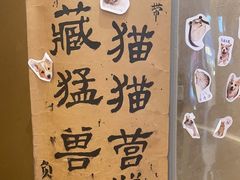 带
猫猫营
藏猛兽